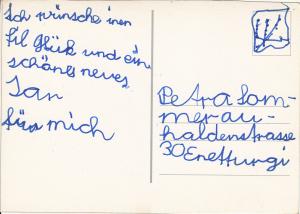 Ich wünsche inen
fil glük und ein
schönes neues
Jar
für mich
Petra Som-
merau-
haldenstrasse
30 Enetturgi